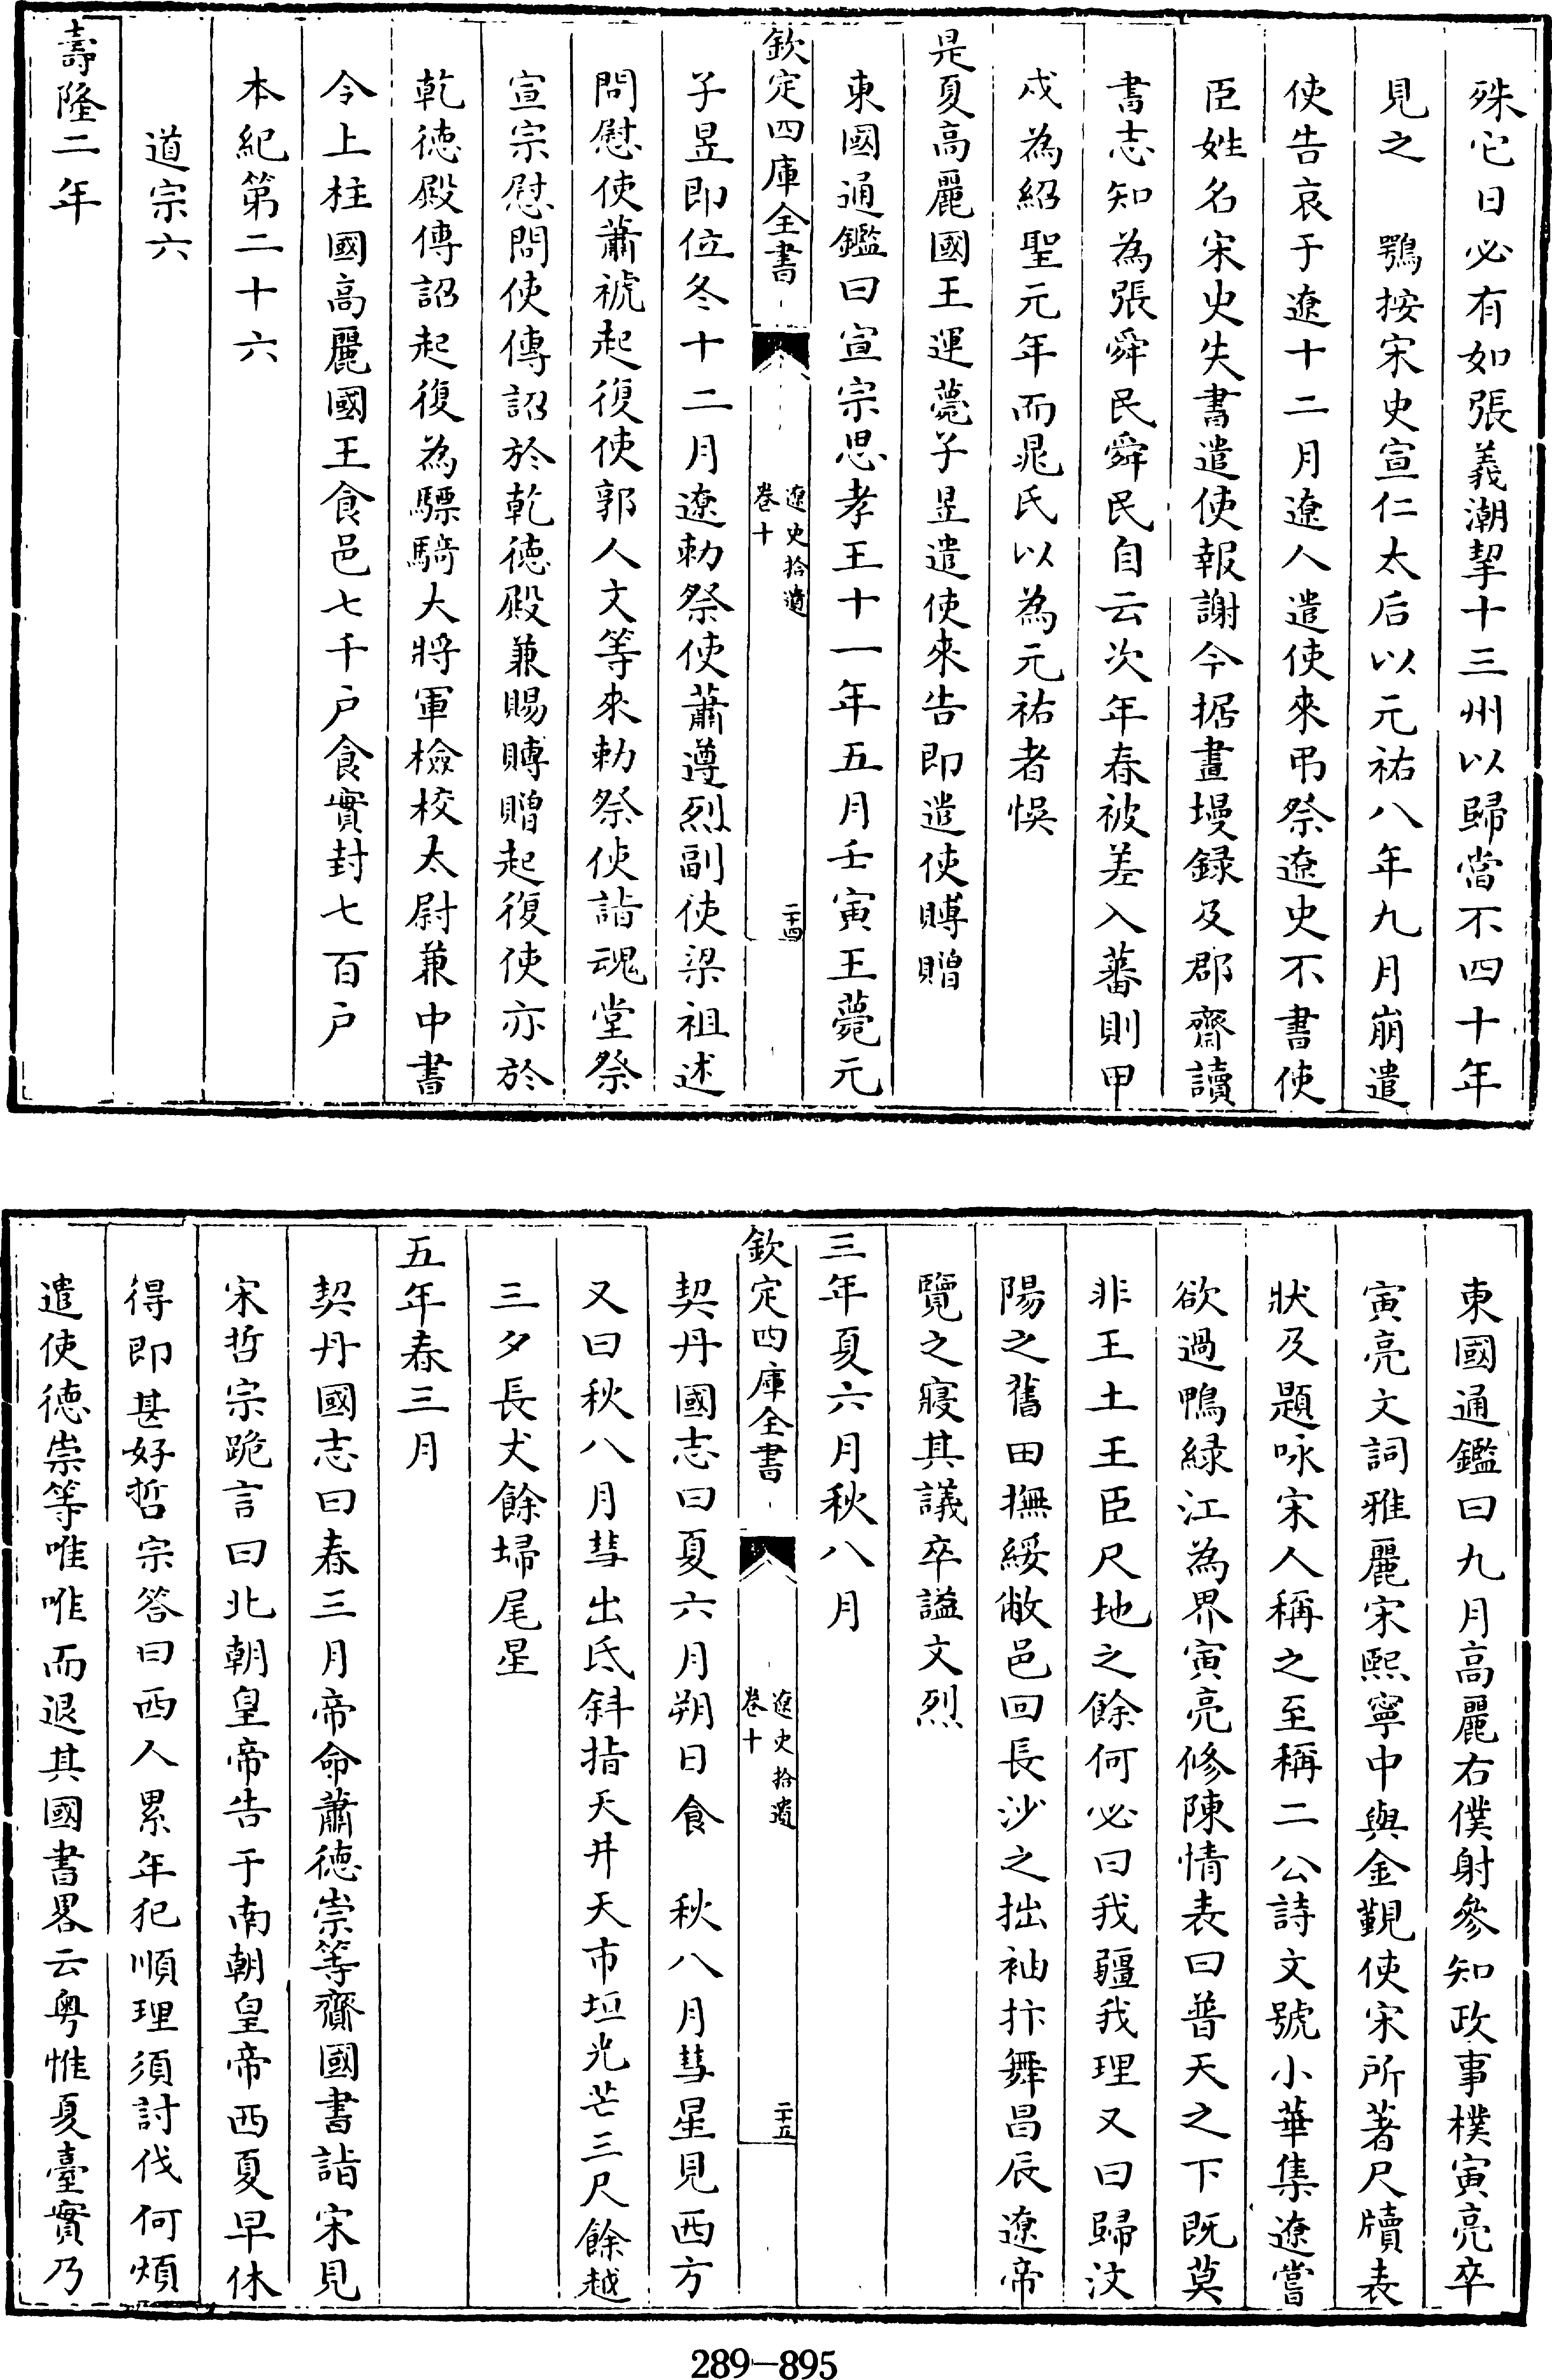 殊它日必有如張義潮挈十三州以歸當不四十年
見之　鶚按宋史宣仁太后以元祐八年九月崩遣
使告哀于遼十二月遼人遣使來弔祭遼史不書使
臣姓名宋史失書遣使報謝今据畫墁録及郡齋讀
書志知為張舜民舜民自云次年春被差入蕃則甲
戌為紹聖元年而晁氏以為元祐者悞
是夏高麗國王運薨子昱遣使來告即遣使賻贈
東國通鑑曰宣宗思孝王十一年五月壬寅王薨元
欽定四庫全書
遼史拾遺
卷十
二十四
子昱即位冬十二月遼勅祭使蕭遵烈副使梁祖述
問慰使蕭禠起復使郭人文等來勅祭使詣魂堂祭
宣宗慰問使傳詔於乾德殿兼賜賻贈起復使亦於
乾德殿傳詔起復為驃騎大將軍檢校太尉兼中書
令上柱國高麗國王食邑七千户食實封七百户
本紀第二十六
道宗六
壽隆二年
東國通鑑曰九月高麗右僕射參知政事樸寅亮卒
寅亮文詞雅麗宋熙寧中與金覲使宋所著尺牘表
狀及題咏宋人稱之至稱二公詩文號小華集遼嘗
欲過鴨緑江為界寅亮修陳情表曰普天之下既莫
非王土王臣尺地之餘何必曰我疆我理又曰歸汶
陽之舊田撫綏敝邑回長沙之拙袖抃舞昌辰遼帝
覽之寢其議卒謚文烈
三年夏六月秋八月
欽定四庫全書
遼史拾遺
卷十
二十五
契丹國志曰夏六月朔日食　秋八月彗星見西方
又曰秋八月彗出氐斜指天井天市垣光芒三尺餘越
三夕長丈餘埽尾星
五年春三月
契丹國志曰春三月帝命蕭德崇等齎國書詣宋見
宋哲宗跪言曰北朝皇帝告于南朝皇帝西夏早休
得即甚好哲宗答曰西人累年犯順理須討伐何煩
遣使德崇等唯唯而退其國書畧云粤惟夏臺實乃
289-895